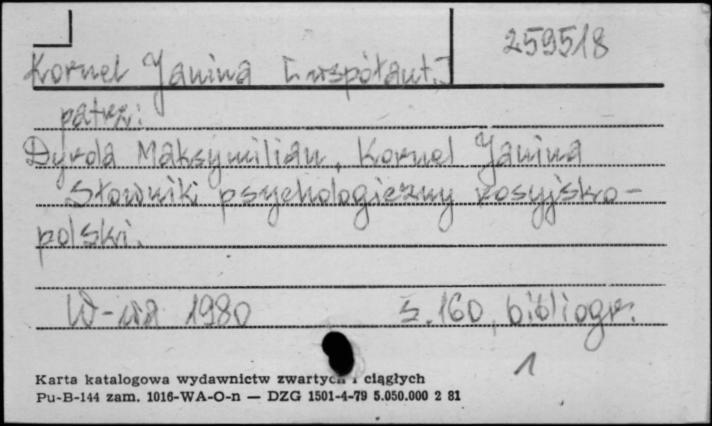 259518
Kornel Janina [współaut.]
patrz:
Dyrda Maksymilian, Kornel Janina
Słownik psychologiczny rosyjsko-
polski.
W-wa 1980 s. 160, bibliogr.
1
Karta katalogowa wydawnictw zwartych i ciągłych
Pu-B-144 zam. 1016-WA-O-n — DZG 1501-4-79 5.050.000 2 81